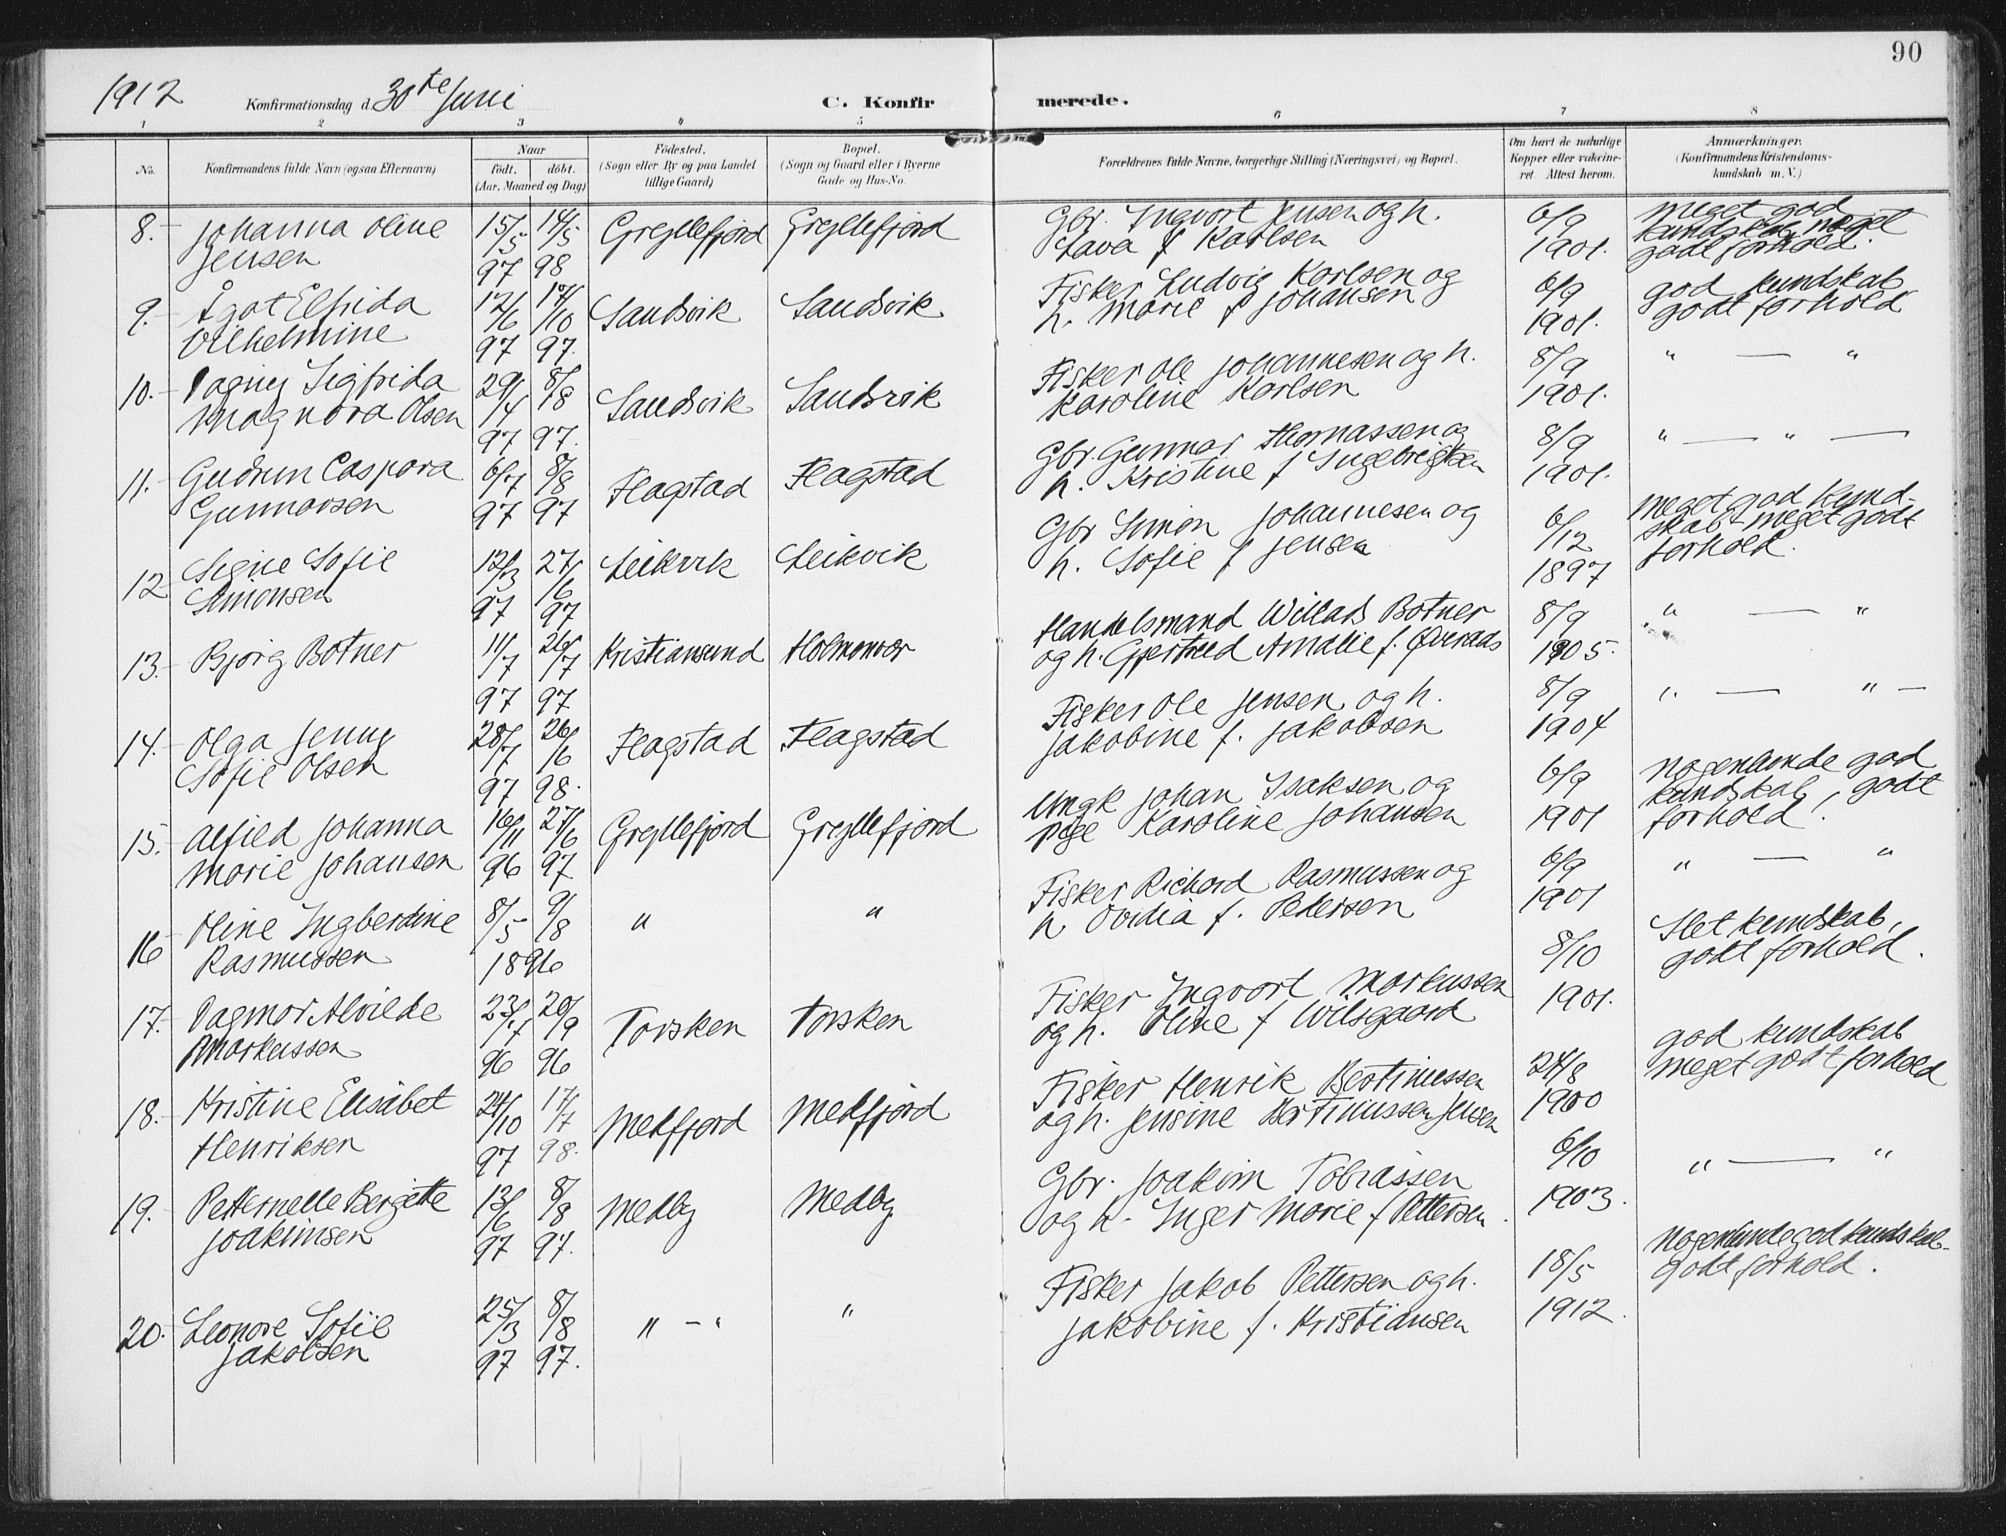 90
1912 Konfirmationsdag d. 30te Juni C. Konfirmerede.
1 2 3 4 5 6 7 8
No. Konfirmandens fulde Navn (ogsaa Efternavn) Naar födt. döbt. (Aar, Maaned og Dag) Födested. (Sogn eller By og paa Landet tillige Gaard) Bopæl. (Sogn og Gaard eller i Byerne Gade og Hus-No. Forældrenes fulde Navne, borgerlige Stilling (Næringsvei) og Bopæl. Om havt de naturlige Kopper eller vakcineret. Attest herom. Anmærkninger. (Konfirmandens Kristendomskundskab m. V.)
8. Johanna Oline 15/5 14/5 Gryllefjord Gryllefjord Gbr. Ingvart Jensen og h. 6/9 meget god
Jensen 97 98 Lava f Karlsen 1901. kundskab meget
godt forhold.
9. Agot Elfrida 12/6 17/10 Sandvik Sandvik Fisker Ludvig Karlsen og 6/9 god kundskab
Vilhelmine 97 97. h. Marie f Johansen 1901. godt forhold
10. Dagny Sigfrida 29/4 8/8 Sandvik Sandvik Fisker Ole Johannesen og h. 8/9 " — "
Magnora Olsen 97 97. Karoline Karlsen 1901.
11. Gudrun Caspara 6/7 8/8 Flagstad Flagstad Gbr. Gunnar Thomassen og 8/9 " — " —
Gunnarsen 97 97 h. Kristine f Ingebrigtsen 1901.
12 Signe Sofie 12/3 27/6 Leikvik Leikvik Gbr Simon Johannesen og 6/12 Meget god kund-
Simonsen 97 97 h. Sofie f Jensen 1897 skab - meget godt
forhold.
13. Bjørg Botner 11/7 26/7 Kristiansund Holmenvær Handelsmand Willads Botner 8/9 " — "
97 97 og h. Gjertrud Amalie f. 1905.
14. Olga Jenny 28/7 26/6 Flagstad Flagstad Fisker Ole Jensen og h. 8/9 " — " —
Sofie Olsen 97 98. Jakobine f. Jakobsen 1904
15. Alfild Johanna 16/11 27/6 Gryllefjord Gryllefjord Ungk Johan Isaksen og 6/9 Nogenlunde god
Marie Johansen 96 97. pige Karoline Johansen 1901 kundskab, godt
forhold.
16 Oline Ingberdine 8/5 9/8 " " Fisker Richard Rasmussen og 6/9 " — "
Rasmussen 1896 h Ovidia f. Pedersen 1901
17. Dagmar Alvilde 20/9 Torsken Torsken Fisker Ingvart Markussen 8/10 Slet kundskab,
Markussen 96 96 og h. Oline f Wilsgaard 1901. godt forhold.
18. Kristine Elisabet 24/10 17/7 Medfjord Medfjord Fisker Henrik Bertinussen 24/8 god kundskab
Henriksen 97 98. og h. Jensine Bertinussen Jensen 1900 meget godt forhold
19. Petternelle Bergette 13/6 8/8 Medby Medby Gbr. Joakim Tobiassen 6/10 " — "
Joakimsen 97 97. og h. Inger Marie f Pettersen. 1903.
20. Leonore Sofie 25/3 8/8 " - " " Fisker Jakob Pettersen og h. 18/5 Nogenlunde god kundskab-
Jakobsen 97 97. Jakobine f. Kristiansen 1912. godt forhold.